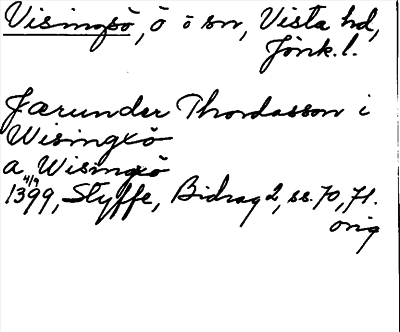 Visingsö, ö ö sn, Vista hd,
Jönk. l.
Jærunder Thordasson i
Wisingxö
a Wisingxö
4/9
1399, Styffe, Bidrag 2, ss. 70, 71.
orig